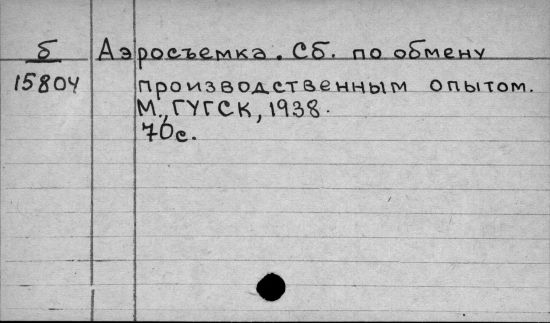 Б Аэросъемка. Сб. по обмену
15804 производственным опытом.
М., ГУГСК, 1938.
70с.